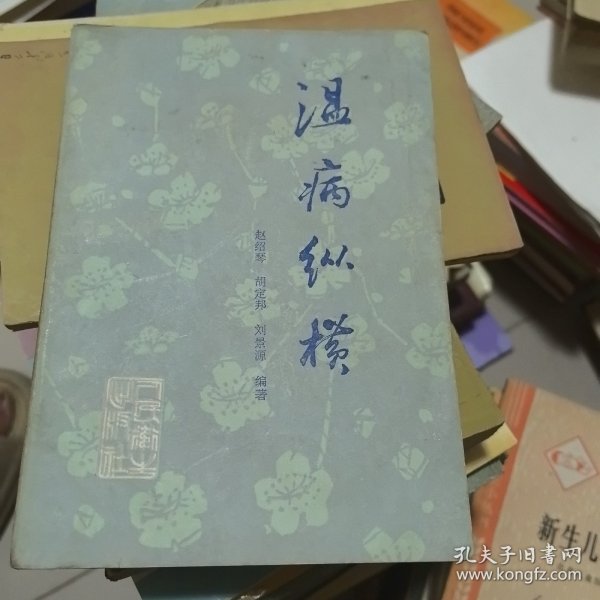 温病纵横
赵绍琴 胡定邦 刘景源 编著
人民卫生
出版社
新生儿
孔夫子旧书网
www.kongfz.com